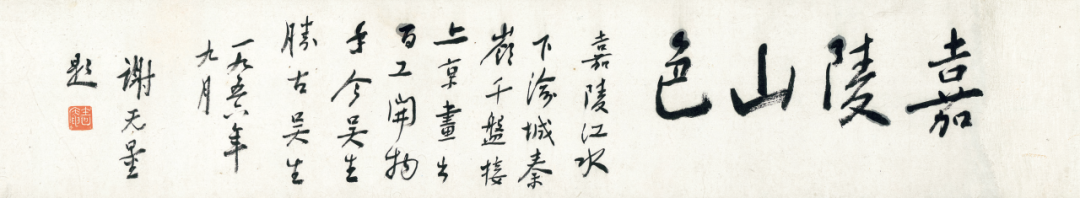 嘉陵山色
嘉陵江水
下渝城秦
嶺千盤接
上京畫出
百工開物
手今吴生
勝古吴生
一九五六年
九月
謝无量
題